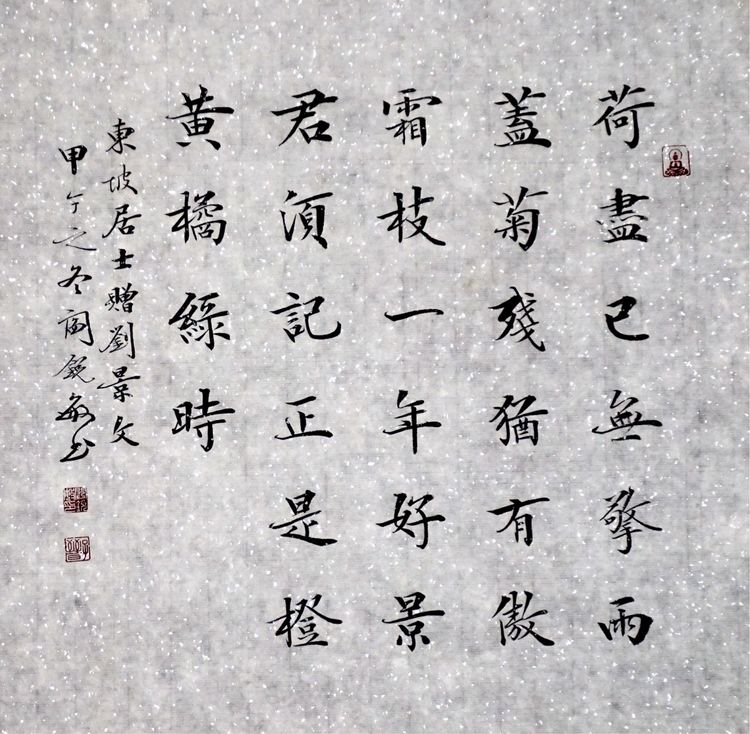 荷盡已無擎雨
蓋菊殘猶有傲
霜枝一年好景
君須記正是橙
黃橘綠時
東坡居士贈劉景文
甲午之冬銳敏書